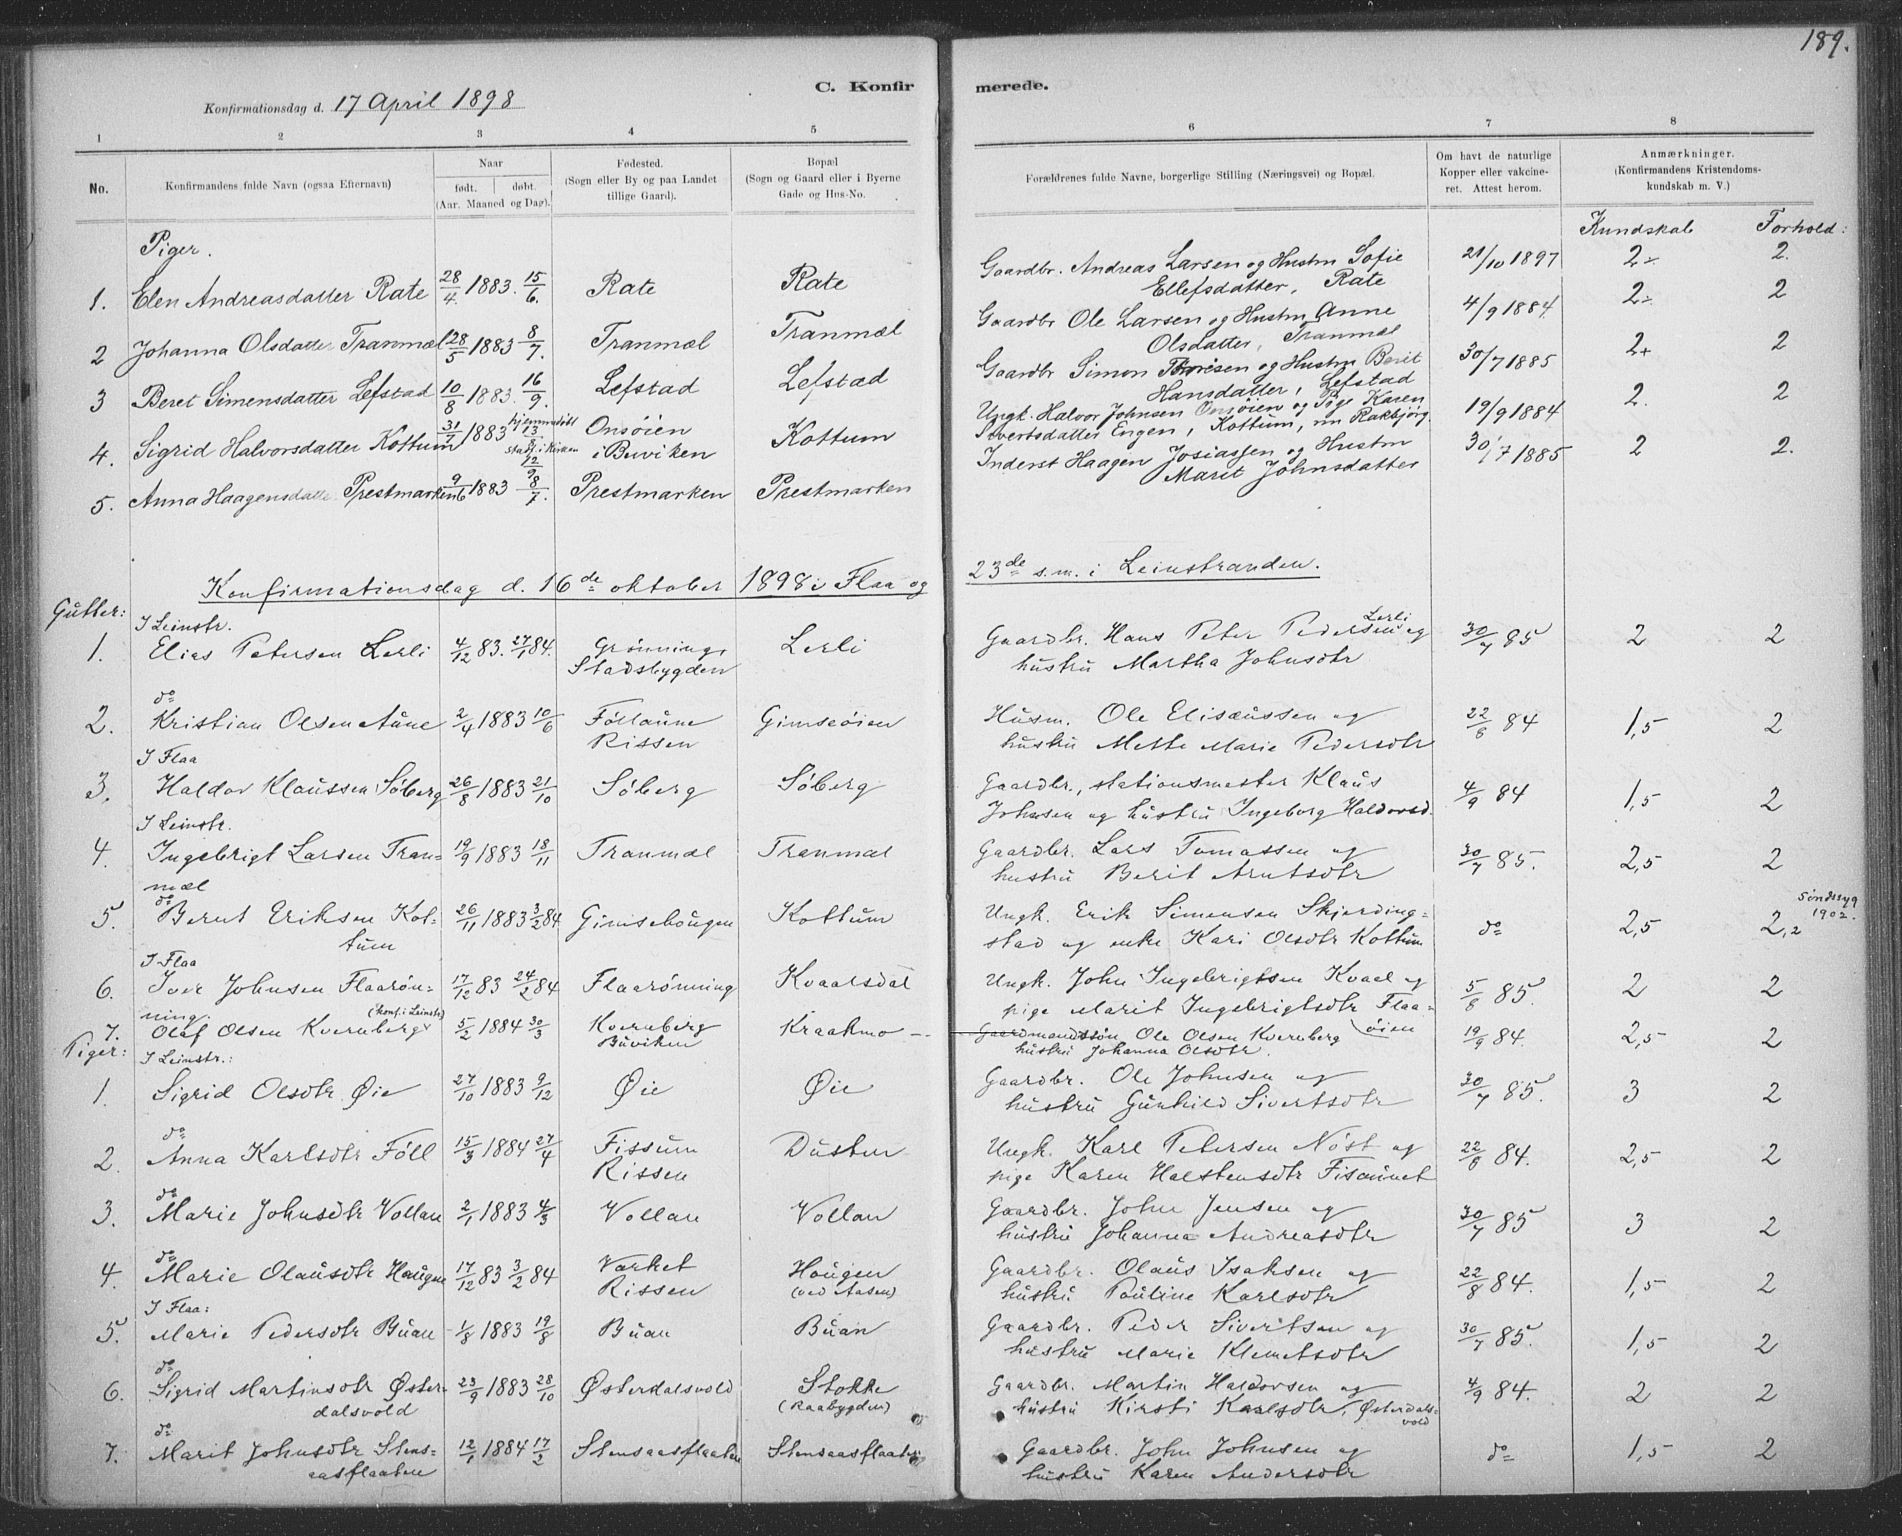 189.
C. Konfirmerede.
Konfirmationsdag d. 17 April 1898
1 2 3 4 5 6 7 8
No.
Konfirmandens fulde Navn (ogsaa Efternavn)
Naar
født. døbt.
(Aar. Maaned og Dag).
Fødested.
(Sogn eller By og paa Landet
tillige Gaard).
Bopæl
(Sogn og Gaard eller i Byerne
Gade og Hus-No.
Forældrenes fulde Navne, borgerlige Stilling (Næringsvei) og Bopæl.
Om havt de naturlige
Kopper eller vakcine-
ret. Attest herom.
Anmærkninger.
(Konfirmandens Kristendoms-
kundskab m. V.)
Kundskab Forhold:
Piger.
1. Elen Andreasdatter Rate 28/4 1883. 15/6. Rate Rate Gaardbr. Andreas Larsen og Hustru Sofie 21/10 1897 2÷ 2.
Ellefsdatter, Rate
2 Johanna Olsdatter Tranmæl 28/5 1883 8/7. Tranmæl Tranmæl Gaardbr Ole Larsen og Hustru Anne 4/9 1884 2÷ 2
Olsdatter, Tranmæl
3 Beret Simensdatter Lefstad 10/8 1883. 16/9. Lefstad Lefstad Gaardbr Simon Thoresen og Hustru Berit 30/7 1885 2+ 2
Hansdatter, Lefstad
4. Sigrid Halvorsdatter Kottum 31/7 1883 hjemmedøbt 13/8 stadf. i Kirken 12/9 Onsöien i Buviken Kottum Ungk. Halvor Johnsen Onsöien og Pige Karen 19/9 1884 2. 2
Sivertsdatter Engen, Kottum, nu Rakbjørg.
5. Anna Haagensdatter Prestmarken 9/6 1883 8/7. Prestmarken Prestmarken Inderst Haagen Josiassen og Hustru 30/7 1885 2 2.
Marit Johnsdatter
Konfirmationsdag d. 16de oktober 1898 i Flaa og 23de s.m. i Leinstranden.
Gutter:
I Leinstr.
1. Elias Petersen Lerli 4/12 83. 27/1 84. Grønning, Lerli Gaardbr. Hans Peter Pedersen Lerli og 30/7 85 2 2
Stadsbygden hustru Martha Johnsdtr
do
2. Kristian Olsen Aune 2/4 1883 10/6 Föllaune Gimseöien Husm. Ole Elisæussen og 22/8 84 1,5 2
Rissen hustru Mette Marie Pedersdtr
I Flaa
3. Haldor Klaussen Söberg 26/8 1883 21/10 Söberg Söberg Gaardbr., stationsmester Klaus 4/9 84 1,5 2
Johnsen og hustru Ingeborg Haldorsd.
I Leinstr.
4. Ingebrigt Larsen Tran= 19/9 1883 18/11 Tranmæl Tranmæl Gaardbr. Lars Tomassen og 30/7 85. 2,5 2
mæl hustru Berit Arntsdtr
do
5. Bernt Eriksen Kot- 26/11 1883 3/2 84 Gimsehougen Kottum Ungk. Erik Simensen Skjerding= do 2,5 2,2
tum stad og enke Kari Olsdtr Kottum
1902.
I Flaa
6. Iver Johnsen Flaarøn= 17/12 83 24/2 84 Flaarönning Kvaalsdal Ungk. John Ingebrigtsen Kvaal og 5/8 85. 2 2
ning. pige Marit Ingebrigtsdtr Flaa=
öien
(konf. i Leinstr)
7. Olaf Olsen Kvernberg 5/2 1884 30/3 Kvernberg Kraakmo Gaardmandssøn Ole Olsen Kvernberg 19/9 84. 2,5 2
Buviken hustru Johanna Olsdtr.
Piger:
I Leinstr.:
1. Sigrid Olsdtr. Øie 27/10 1883 9/12 Øie Øie Gaardbr. Ole Johnsen og 30/7 85. 3 2
hustru Gunhild Sivertsdtr
do
2. Anna Karlsdtr Föll 15/3 1884 27/4 Fissum Dusten Ungk. Karl Petersen Nöst og 22/8 84. 2,5 2
Rissen pige Karen Halstensdtr Fisaunet
do
3. Marie Johnsdtr Vollan 2/1 1883 4/3 Vollan Vollan Gaardbr. John Jensen og 30/7 85 3 2
hustru Johanna Andreasdtr
do
4. Marie Olausdtr Haugen 17/12 83 3/2 84 Varket Hougen Gaardbr. Olaus Isaksen og 22/8 84. 1,5 2
Rissen (ved Aasen) hustru Pauline Karlsdtr
I Flaa:
5. Marie Pedersdtr Buan 1/8 1883 19/8 Buan Buan Gaardbr. Peder Sivertsen og 30/7 85. 1,5 2
hustru Marie Klemetsdtr
do
6. Sigrid Martinsdtr Øster= 23/9 1883 28/10 Østerdalsvold Stokke Gaardbr. Martin Haldorsen og 4/9 84. 2 2
dalsvold (Raabygden) hustru Kirsti Karlsdtr, Østerdals=
vold
do
7. Marit Johnsdtr Stens= 12/1 1884 17/2 Stensaasflaaten Stensaasflaaten Gaardbr. John Johnsen og do 1,5 2
aasflaaten hustru Karen Andersdtr